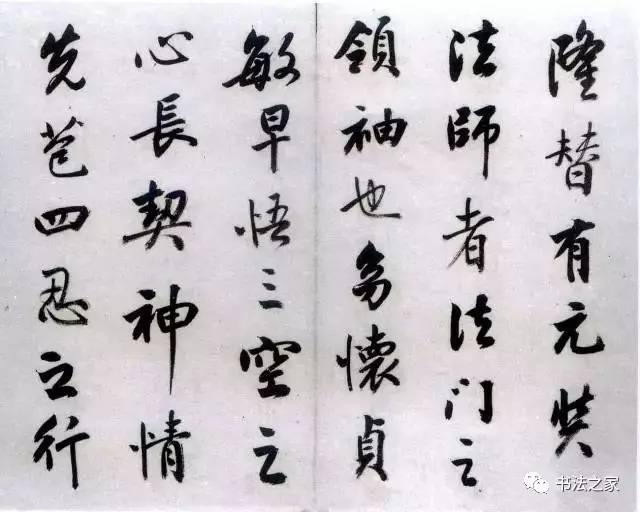 隆替有元奘
法師者法门之
領袖也幼懷貞
敏早悟三空之
心長契神情
先苞四忍之行
书法之家